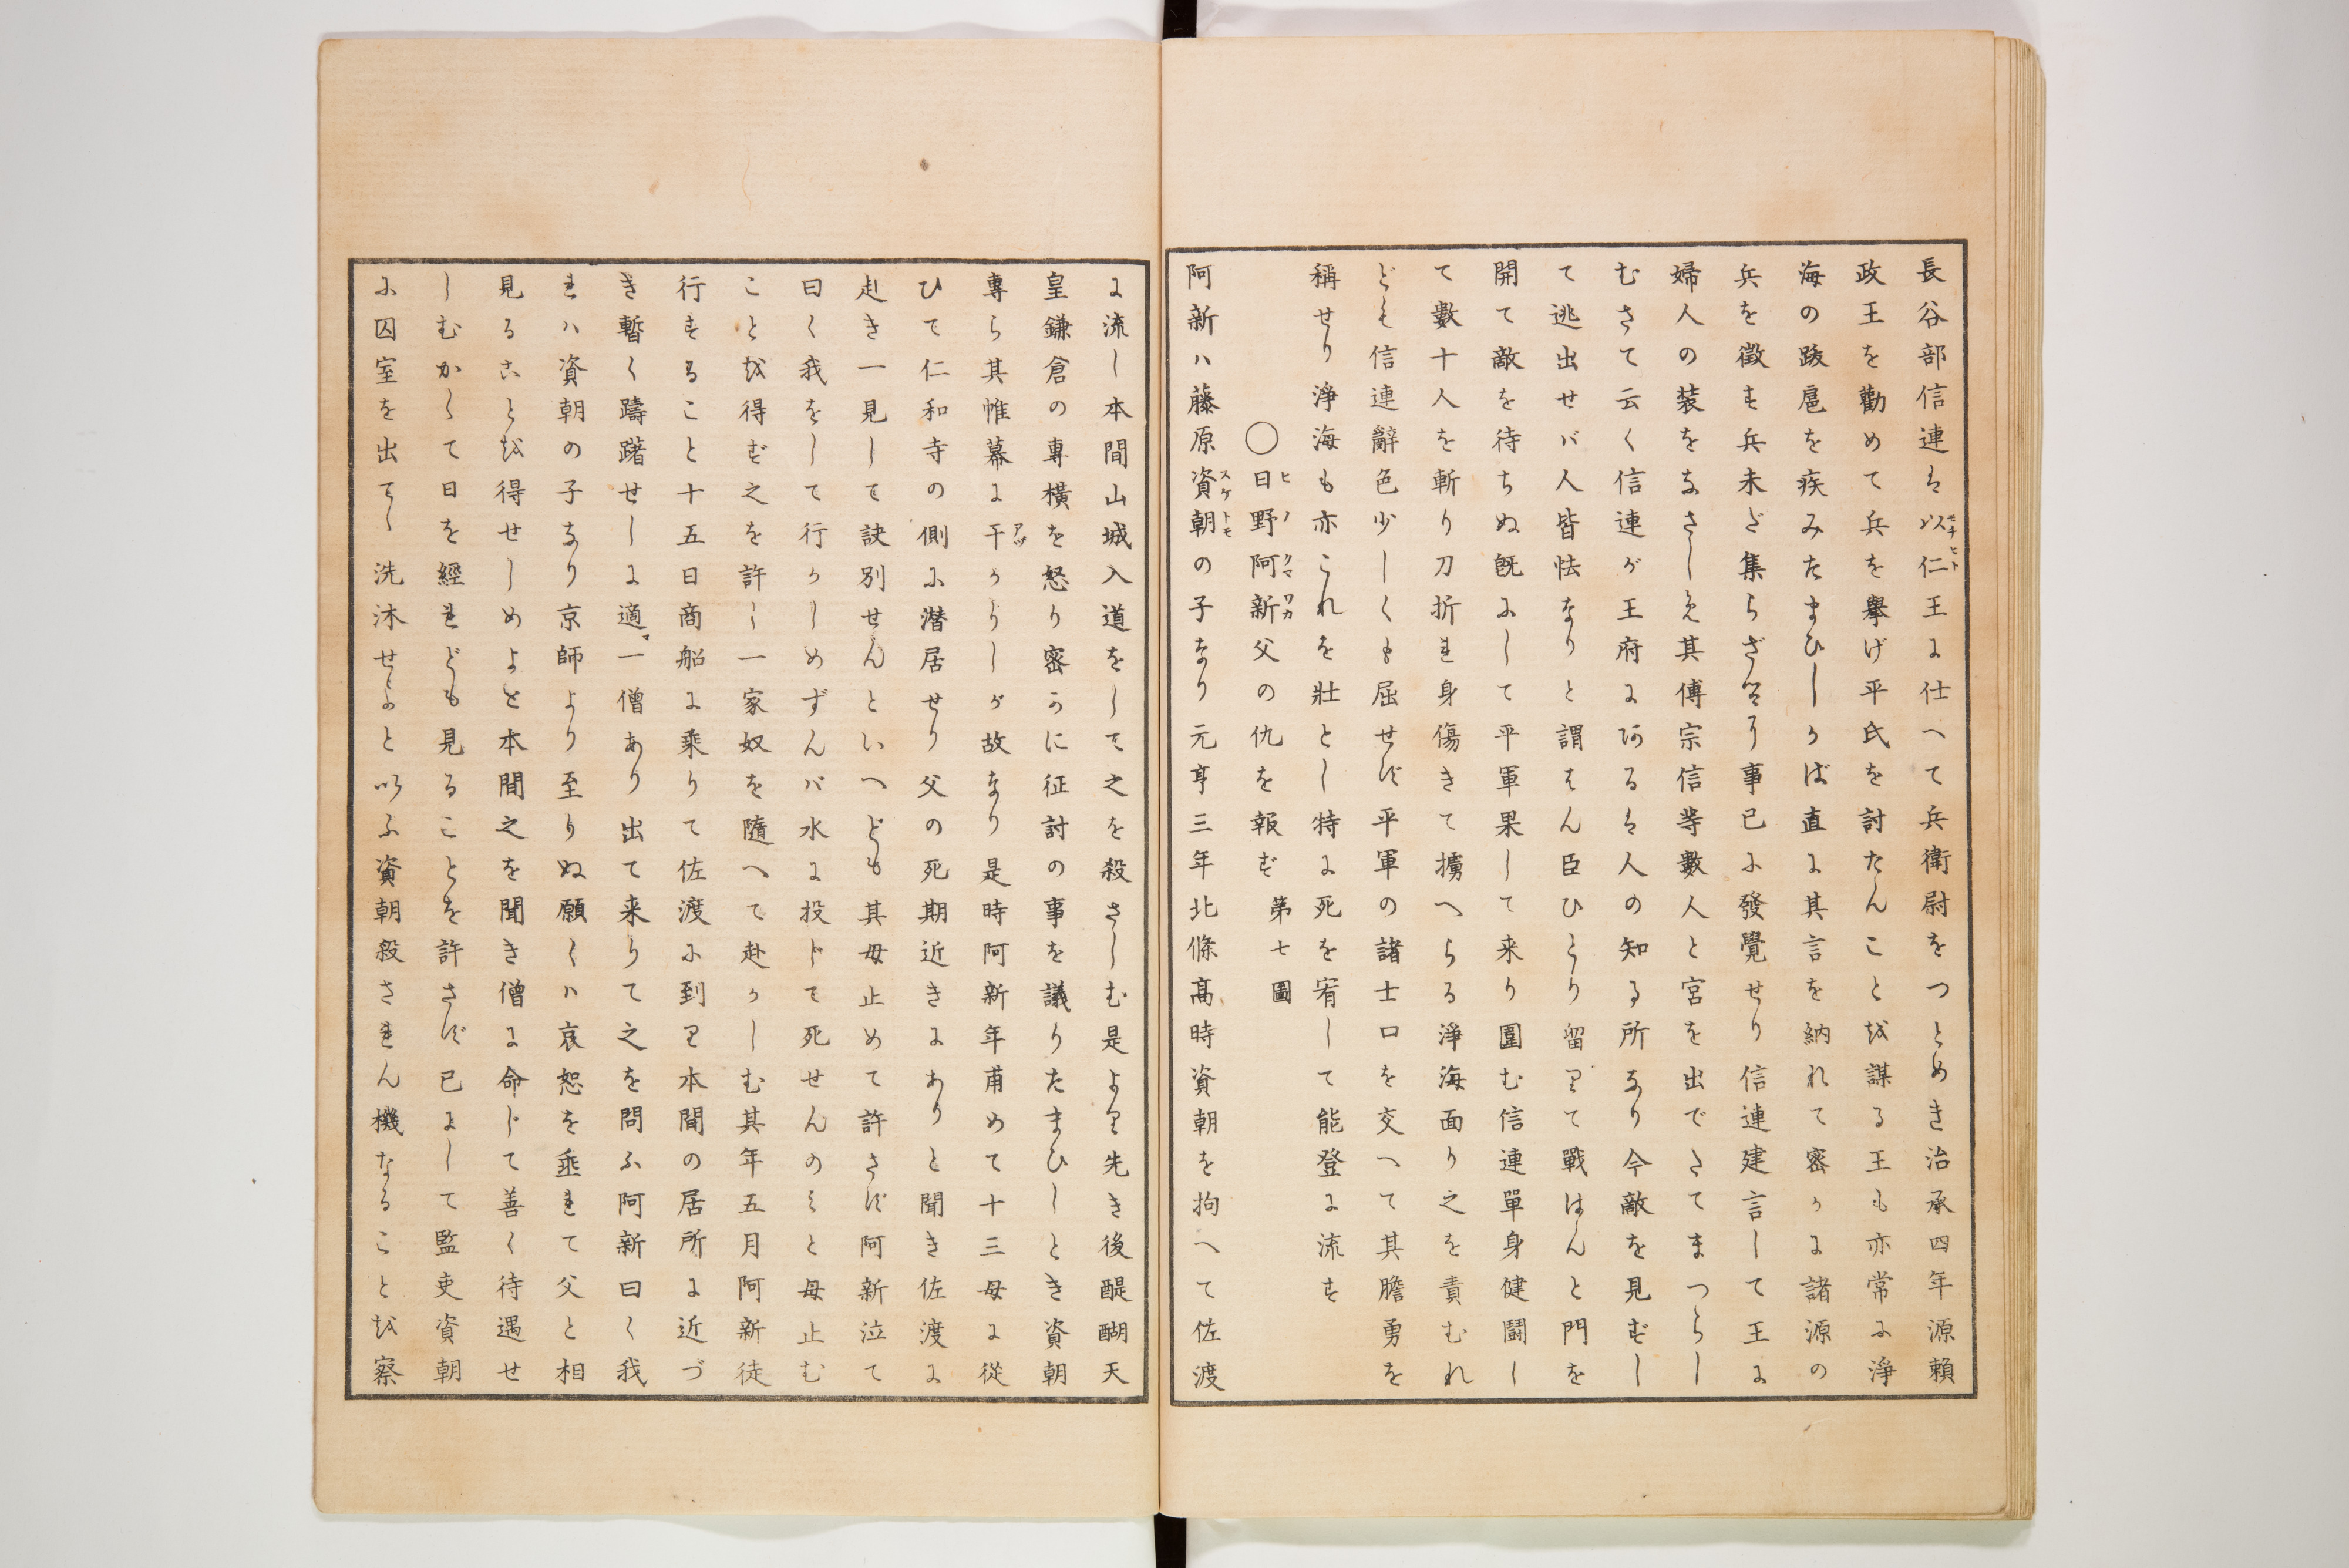 長谷部信連は以仁王に仕へて兵衛尉をつとめき治承四年源頼
政王を勸めて兵を擧げ平氏を討たんことを謀る王も亦常に淨
海の跋扈を疾みたまひしかば直に其言を納れて密かに諸源の
兵を徴す兵未だ集らざるに事已に發覺せり信連建言して王に
婦人の装をなさしめ其傅宗信等數人と宮を出でさてまつらし
むさて云く信連が王府に在るは人の知る所なり今敵を見ずし
て逃出せバ人皆怯なりと謂はん臣ひとり留りて戰はんと門を
開て敵を待ちぬ既にして平軍果して来り圍む信連單身健鬪し
て數十人を斬り刀折れ身傷きて擒へらる淨海面り之を責むれ
ども信連辭色少しくも屈せず平軍の諸士口を交へて其膽勇を
稱せり淨海も亦これを壯とし特に死を宥して能登に流す
〇日野阿新父の仇を報ず 第七圖
阿新ハ藤原資朝の子なり元亨三年北條高時資朝を拘へて佐渡
に流し本間山城入道をして之を殺さしむ是より先き後醍醐天
皇鎌倉の專横を怒り密かに征討の事を議りたまひしとき資朝
專ら其帷幕に干かりしが故なり是時阿新年甫めて十三母に從
ひて仁和寺の側に潜居せり父の死期近きにありと聞き佐渡に
赴き一見して訣別せんといへども其母止めて許さず阿新泣て
曰く我をして行かしめずんバ水に投じて死せんのミと母止む
ことを得ず之を許し一家奴を隨へて赴かしむ其年五月阿新徒
行すること十五日商船に乘りて佐渡に到り本間の居所に近づ
き暫く躊躇せしに適〻一僧あり出て来りて之を問ふ阿新曰く我
れハ資朝の子なり京師より至りぬ願くハ哀恕を垂れて父と相
見ることを得せしめよと本間之を聞き僧に命じて善く待遇せ
しむかくて日を經れども見ることを許さず已にして監吏資朝
に囚室を出てゝ洗沐せよと以ふ資朝殺されん機なることを察